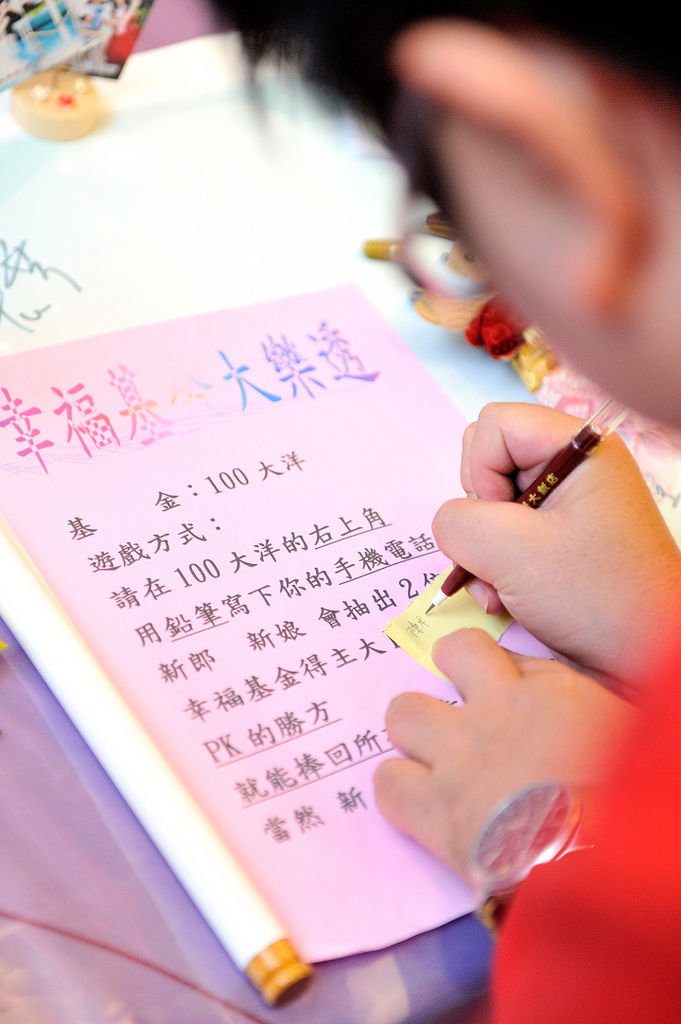 幸福基金大樂透
基 金：100 大洋
遊戲方式：
請在 100 大洋的右上角
用鉛筆寫下你的手機電話
新郎 新娘 會抽出 2
幸福基金得主大
PK 的勝方
就能捧回所
當然 新
大飯店